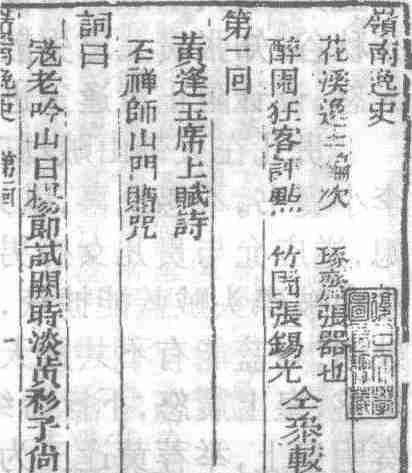 嶺南逸史
花溪逸士編次 琢齋張器也
醉園狂客評點 竹園張錫光 仝參較
第一回
黃逢玉席上賦詩
石禪師山門贈咒
詞曰
寇老吟山日楊郎試闕時淡黃衫子尙